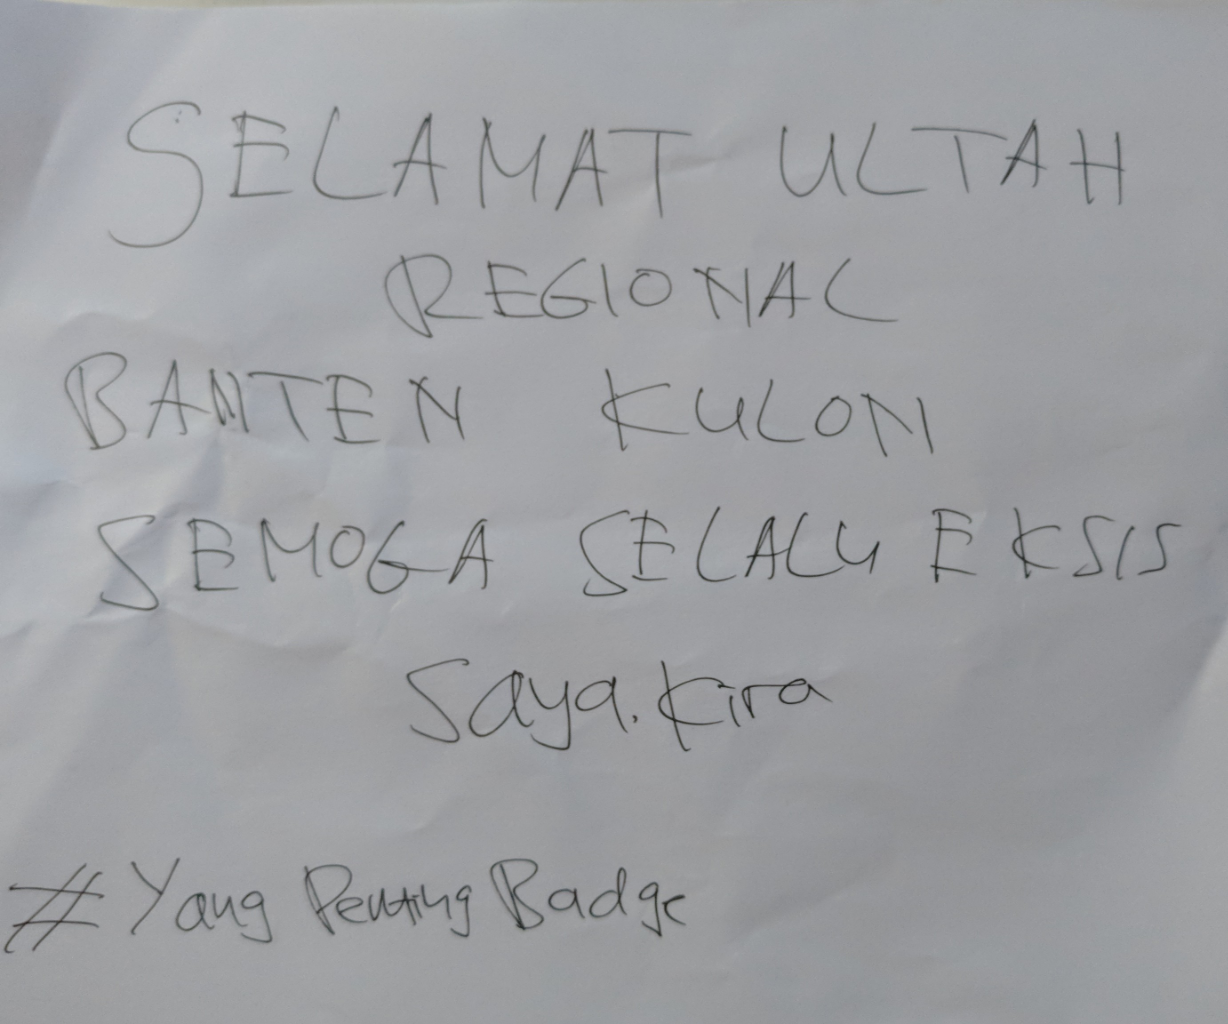 SELAMAT ULTAH
REGIONAL
BANTEN KULON
SEMOGA SELALU EKSIS
Saya.kira
#Yang Penting Badge